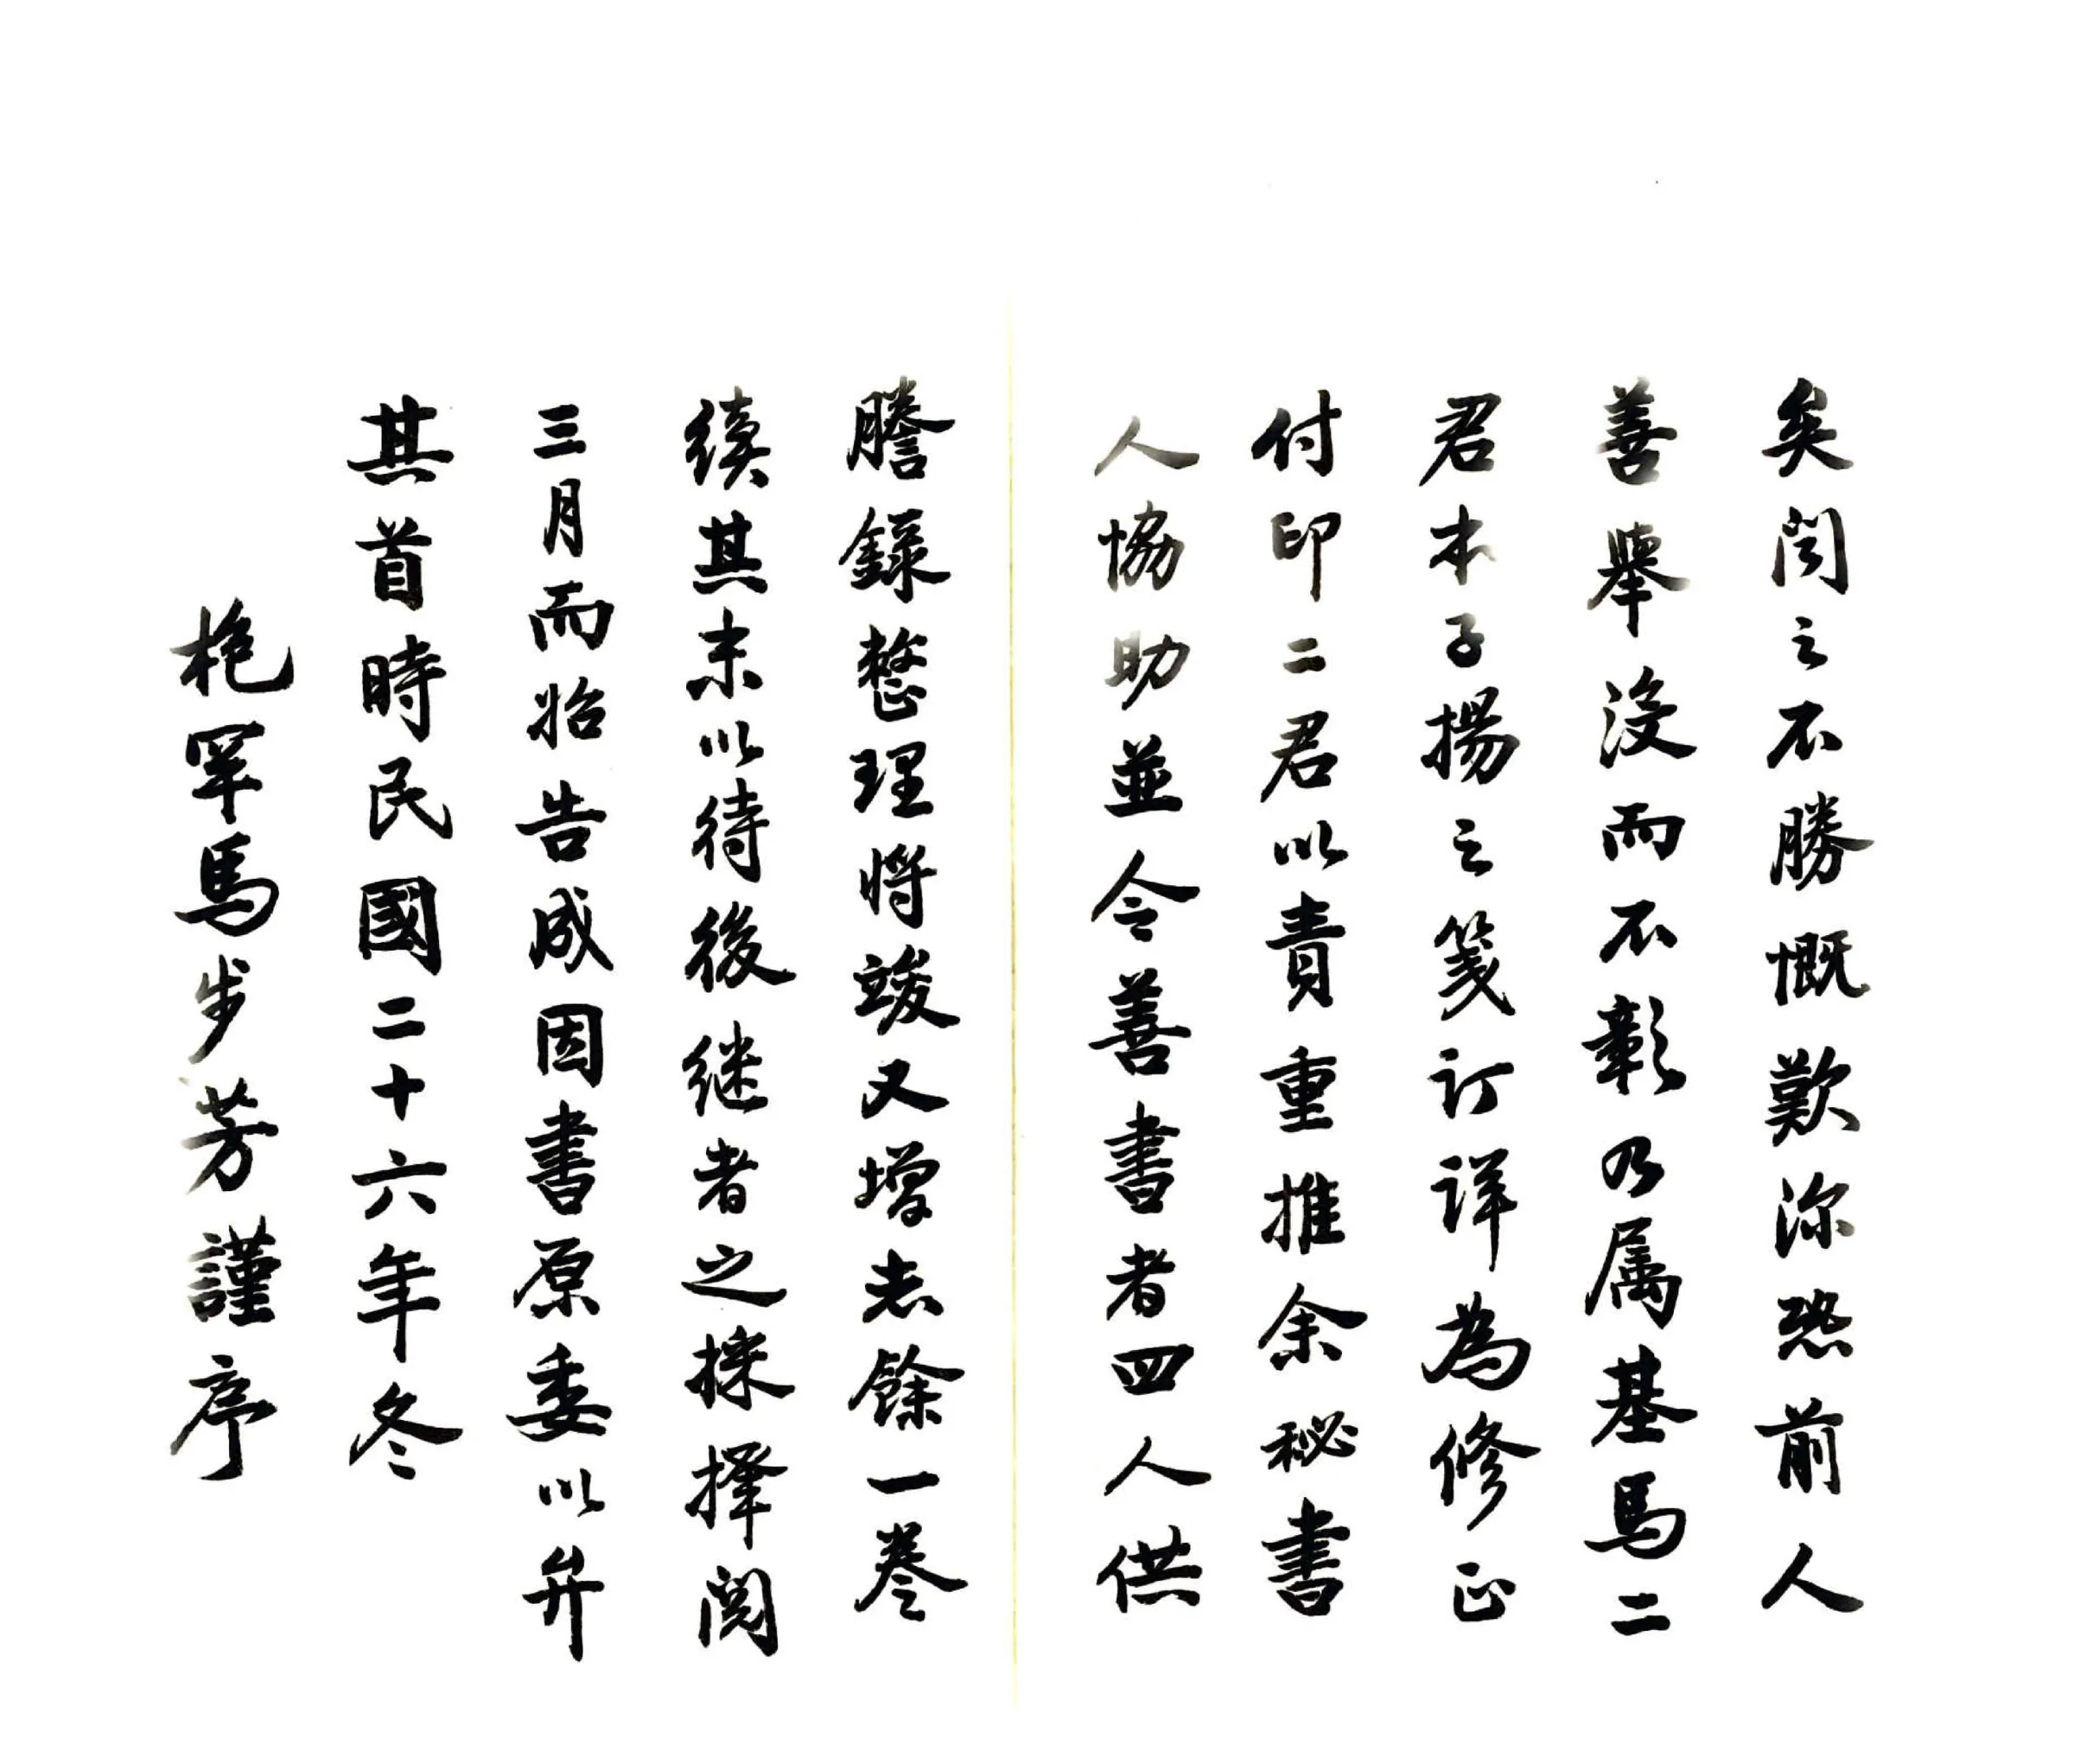 矣閱之不勝慨歎深恐前人
善舉沒而不彰乃属基馬二
君本子揚之箋訂詳為修正
付印二君以責重推余秘書
人協助並令善書者四人供
謄錄整理将竣又增志餘一卷
續其末以待後继者之採擇閱
三月而始告成因書原委以弁
其首時民國二十六年冬
枹罕馬步芳謹序